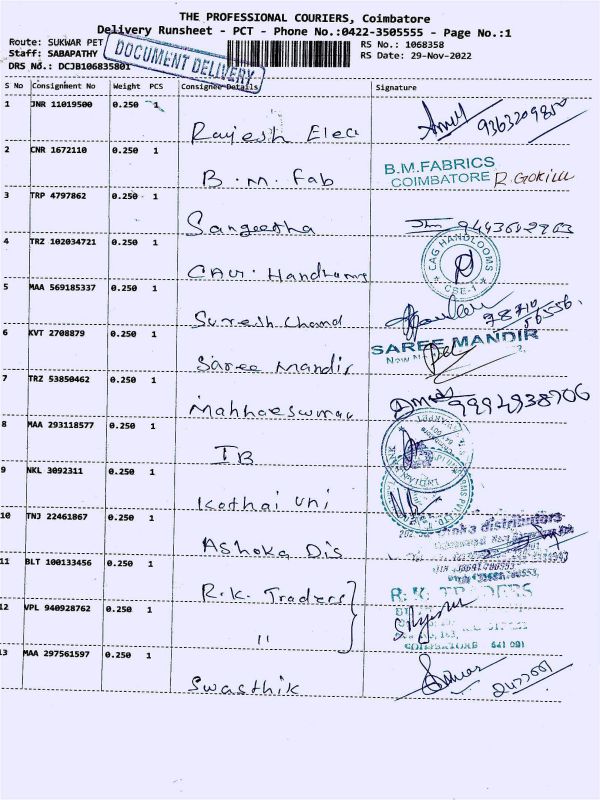 THE PROFESSIONAL COURIERS, Coimbatore
Delivery Runsheet - PCT - Phone No.:0422-3505555 - Page No.:1
Route: SUKWAR PET RS No.: 1068358
Staff: SABAPATHY RS Date: 29-Nov-2022
DOCUMENT DELIVERY
DRS No.: DCJB106835801
S No Consignment No Weight PCS Consignee Details Signature
1 JNR 11019500 0.250 1
Rajesh Elec 9363209850
2 CNR 1672110 0.250 1
B.M.FABRICS
COIMBATORE R. Gokila
B.M. Fab
3 TRP 4797862 0.250 1
Sangeetha
4 TRZ 102034721 0.250 1
CAG HANDLOOMS
CBE-1
5 MAA 569185337 0.250 1
Suresh Chand
6 KVT 2708879 0.250 1
SAREE MANDIR
Saree Mandir
7 TRZ 53850462 0.250 1
9994938706
8 MAA 293118577 0.250 1
IB
9 NKL 3092311 0.250 1
Kothai uni
10 TNJ 22461867 0.250 1
Ashoka distributors
Ashoka Dis
11 BLT 100133456 0.250 1
R.K. Traders
R. K. TRADERS
12 VPL 940928762 0.250 1
"
COIMBATORE 641 001
13 MAA 297561597 0.250 1
Swasthik